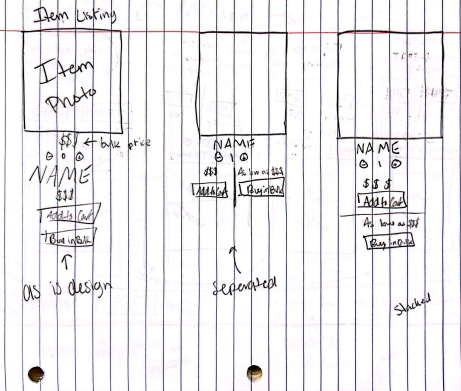 Item Listing
Item
Photo
$$$ ← bulk price
⊖ 0 ⊙
NAME
$$$
Add to Cart
Buy in Bulk
as is design
NAME
⊖ 1 ⊕
$$$
Add to Cart
As low as $$$
Buy in Bulk
Seperated
NAME
⊖ 1 ⊕
$$$
Add to Cart
As low as $$$
Buy in Bulk
Stacked